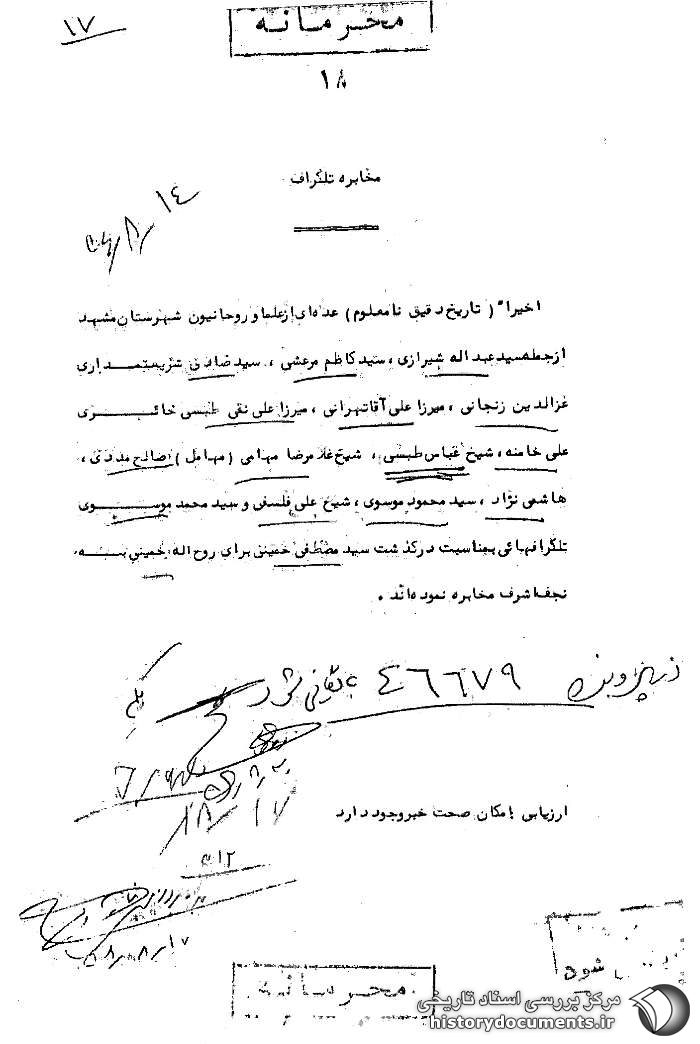 محرمانه
۱۷
۱۸
مخابره تلگراف
۱۴
اخیرا" (تاریخ دقیق نامعلوم) عده‌ای از علما و روحانیون شهرستان مشهد
از جمله سید عبداله شیرازی، سید کاظم مرعشی، سید صادق شریعتمداری
عزالدین زنجانی، میرزا علی آقا تهرانی، میرزا علی نقی طبسی حائری
علی خامنه، شیخ عباس طبسی، شیخ غلامرضا مهامی (مهامل) صالح مددی،
هاشمی نژاد، سید محمود موسوی، شیخ علی فلسفی و سید محمد موسوی
تلگرافهائی بمناسبت درگذشت سید مصطفی خمینی برای روح اله خمینی به
نجف اشرف مخابره نموده‌اند.
در پرونده ۴۶۶۷۹ بایگانی شود
ارزیابی امکان صحت خبر وجود دارد
۱۷
۱۲
۱۷
شود
محرمانه
مرکز بررسی اسناد تاریخی
historydocuments.ir